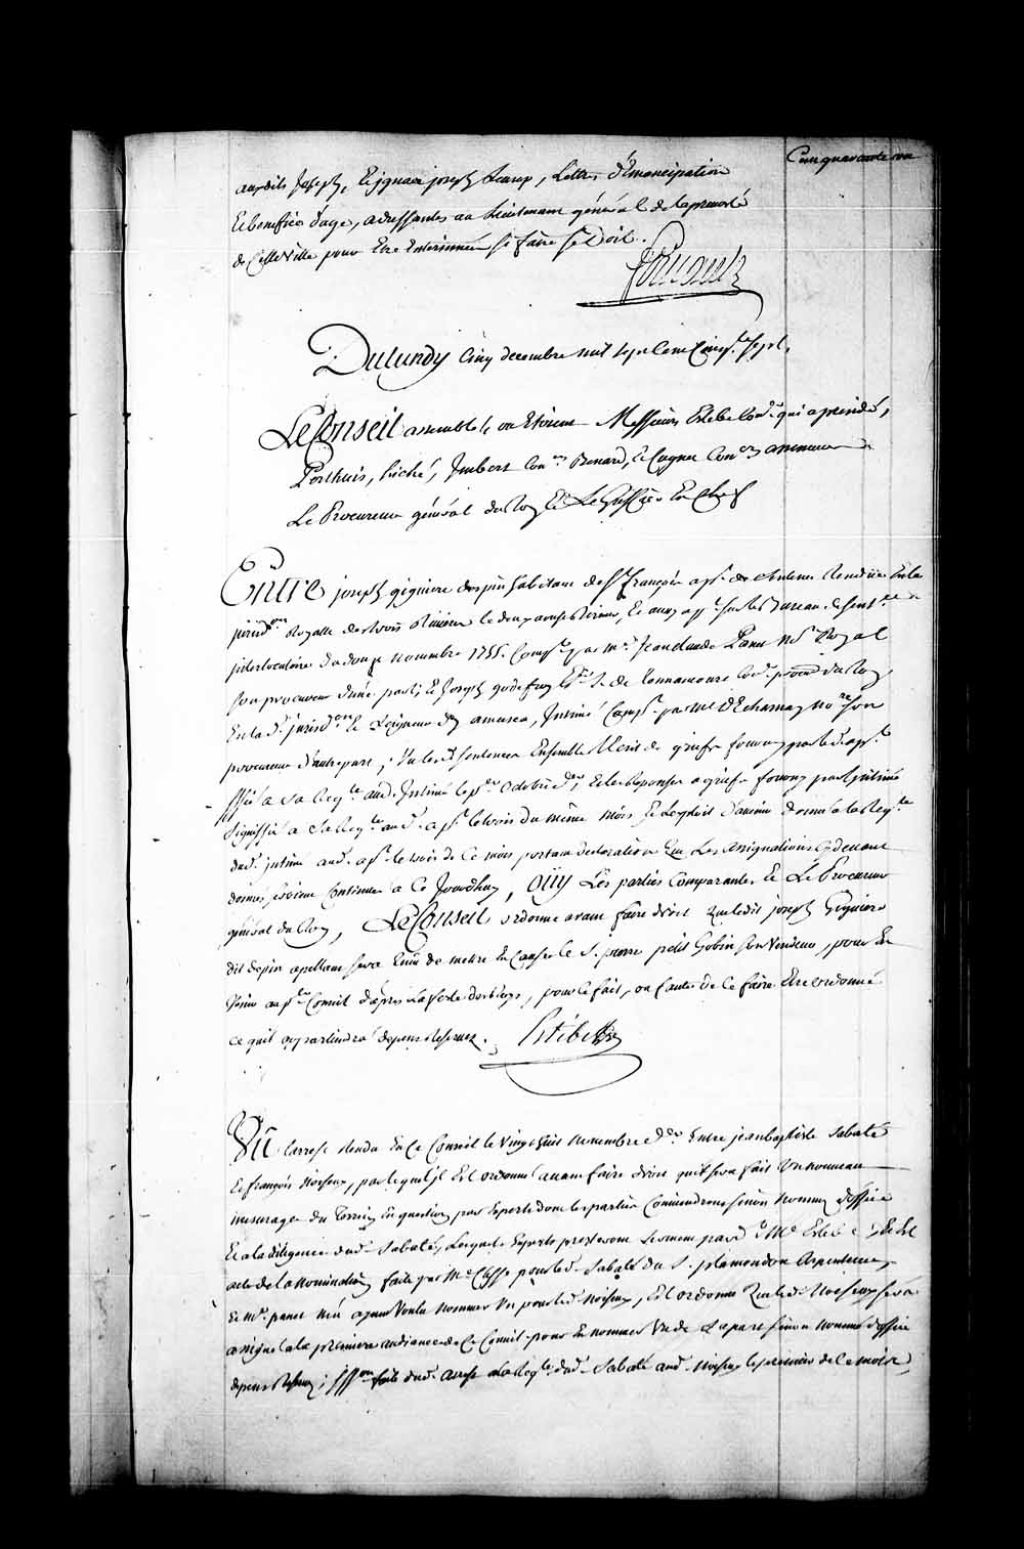 Cent quarante un
auxdits Joseph, et ignace joseph , Lettres d'Emancipation
Et benefice d'age, adressantes au Lieutenant général de la prevosté
de Cette ville pour Etre Enterinnées si faire se Doit.
Foucault
Du Lundy Cinq decembre mil sept Cent Cinq.te Sept.
Le Conseil assemblé ou Etoient Messieurs Estebe Con.er qui a presidé,
Perthuis, Guiché, Imbert Con.ers Benard, et Cugnet Con.ers assesseurs
Le Procureur général du Roy Et Le Greffier En Chef
Entre joseph gigniere despin habitant de St françois ap.t de sentence Rendüe En la
jurid.on Royalle des trois Rivieres le deux aoust dernier, Et aussy app.t sur le Bureau de sent.ce
jnterlocutoire du douze novembre 1755. Comp.t par M.e Jean claude Panet No.re Royal
son procureur d'une part; Et Joseph godefroy S.r de Tonnancours Con.er proc.r du Roy
En la d.e jurid.on Et Seigneur des amures, Intimé Comp.t par M.e Decharnay No.re son
procureur d'autre part; Vu les d. sentences Ensemble l'Ecrit de griefs fourny par led. ap.t
signiffié a sa Req.te aud. Intimé le p.er Octobre d.er, Et les Reponses a griefs fournis par l'jntimé
signiffié a sa Req.te aud. ap.t le trois du même mois Et L'exploit d'avenir donné a la Req.te
dud. jntimé aud. ap.t le trois de Ce mois portant declaration Que Les assignations Cy devant
données, soient Continuées a Ce Jourd'huy, Ouy Les parties Comparantes Et Le Procureur
général du Roy, Le Conseil ordonne avant faire droit que ledit joseph Gigniere
dit despin apellant sera tenu de mettre En Cause le S. pierre petit Gobin son vendeur, pour Etre
pour le fait, ou faute de Ce faire Etre ordonné
ce qu'il appartiendra depens Reservez.
Estebe
Vû l'arrest Rendu En Ce Conseil le vingt huit novembre d.er Entre jean baptiste Sabaté
Et françois Noiseux, par lequel jl Est ordonné avant faire droit qu'il sera fait Un nouveau
mesurage du Terrein En question par Experts dont les parties Conviendront sinon nommés d'office
Et a la diligence dud. Sabaté, Lesquels Experts presteront Serment pard.t M.e Estebe
acte de la Nomination faite par M.e Classe pour led. Sabaté du S. plamondon Arpenteur,
Et M.e panet n'en ayant voulu nommer Un pour led. Noiseux, Est ordonné Que led. Noiseux sera
assigné a la premiere audiance de Ce Conseil pour En nommer Un de sa part sinon nommé d'office
depens Reservez; Siff.on faite dud. arrest a la Req.te dud. Sabaté aud. Noiseux le premier de Ce mois,